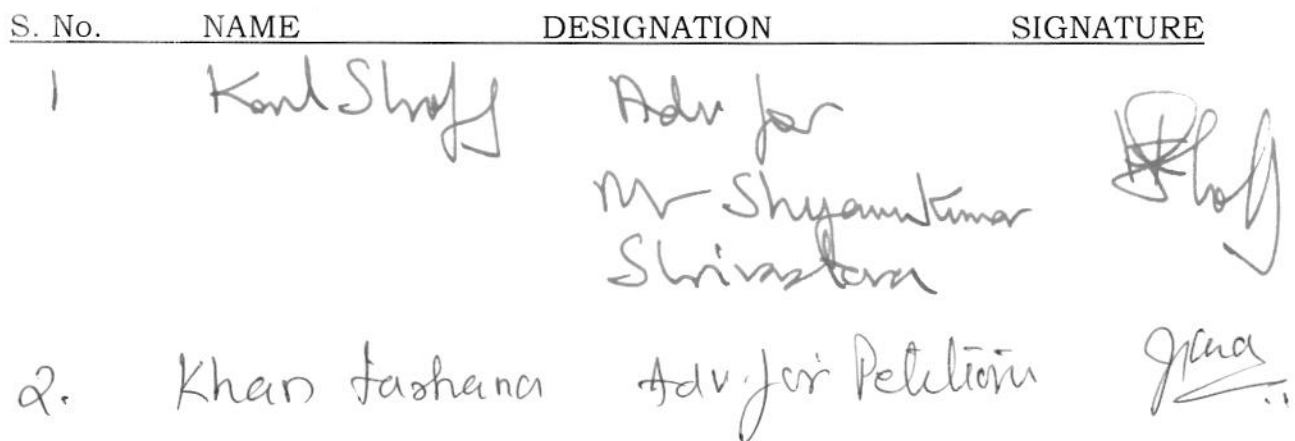 S. No. NAME DESIGNATION SIGNATURE
1 Karl Shroff Adv for
Mr Shyam Kumar
Shrivastava
2. Khan Farhana Adv. for Petition